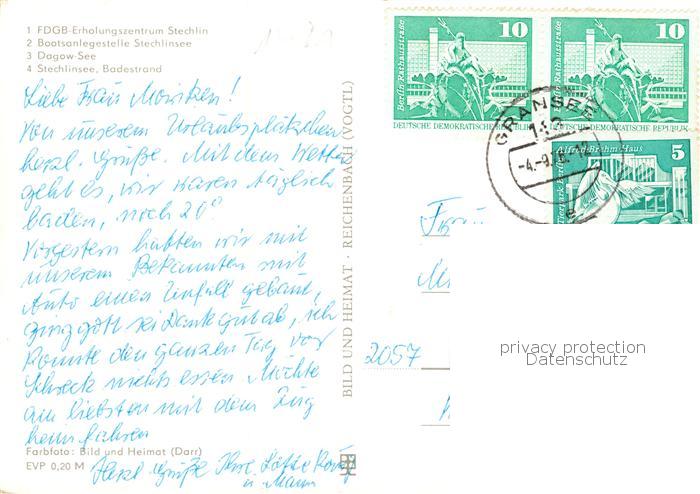 1 FDGB-Erholungszentrum Stechlin
2 Bootsanlegestelle Stechlinsee
3 Dagow-See
4 Stechlinsee, Badestrand
Liebe Frau
Von unserem Urlaubsplätzchen
herzl. Grüße. Mit dem Wetter
geht es, wir waren täglich
baden, noch 20°
Vorgestern hatten wir mit
unserem Bekannten mit
Auto einen Unfall gebaut,
ging gott sei Dank gut ab, ich
konnte den ganzen Tag vor
Schreck nichts essen Möchte
am liebsten mit dem Zug
heim fahren
Herzl. Grüße Ihre
u. Mann
Farbfoto: Bild und Heimat (Darr)
EVP 0,20 M
BILD UND HEIMAT · REICHENBACH (VOGTL)
10
Berlin, Rathausstraße
DEUTSCHE DEMOKRATISCHE REPUBLIK
10
Berlin, Rathausstraße
DEUTSCHE DEMOKRATISCHE REPUBLIK
5
Alfred-Brehm-Haus
GRANSEE
Frau
2057
privacy protection
Datenschutz